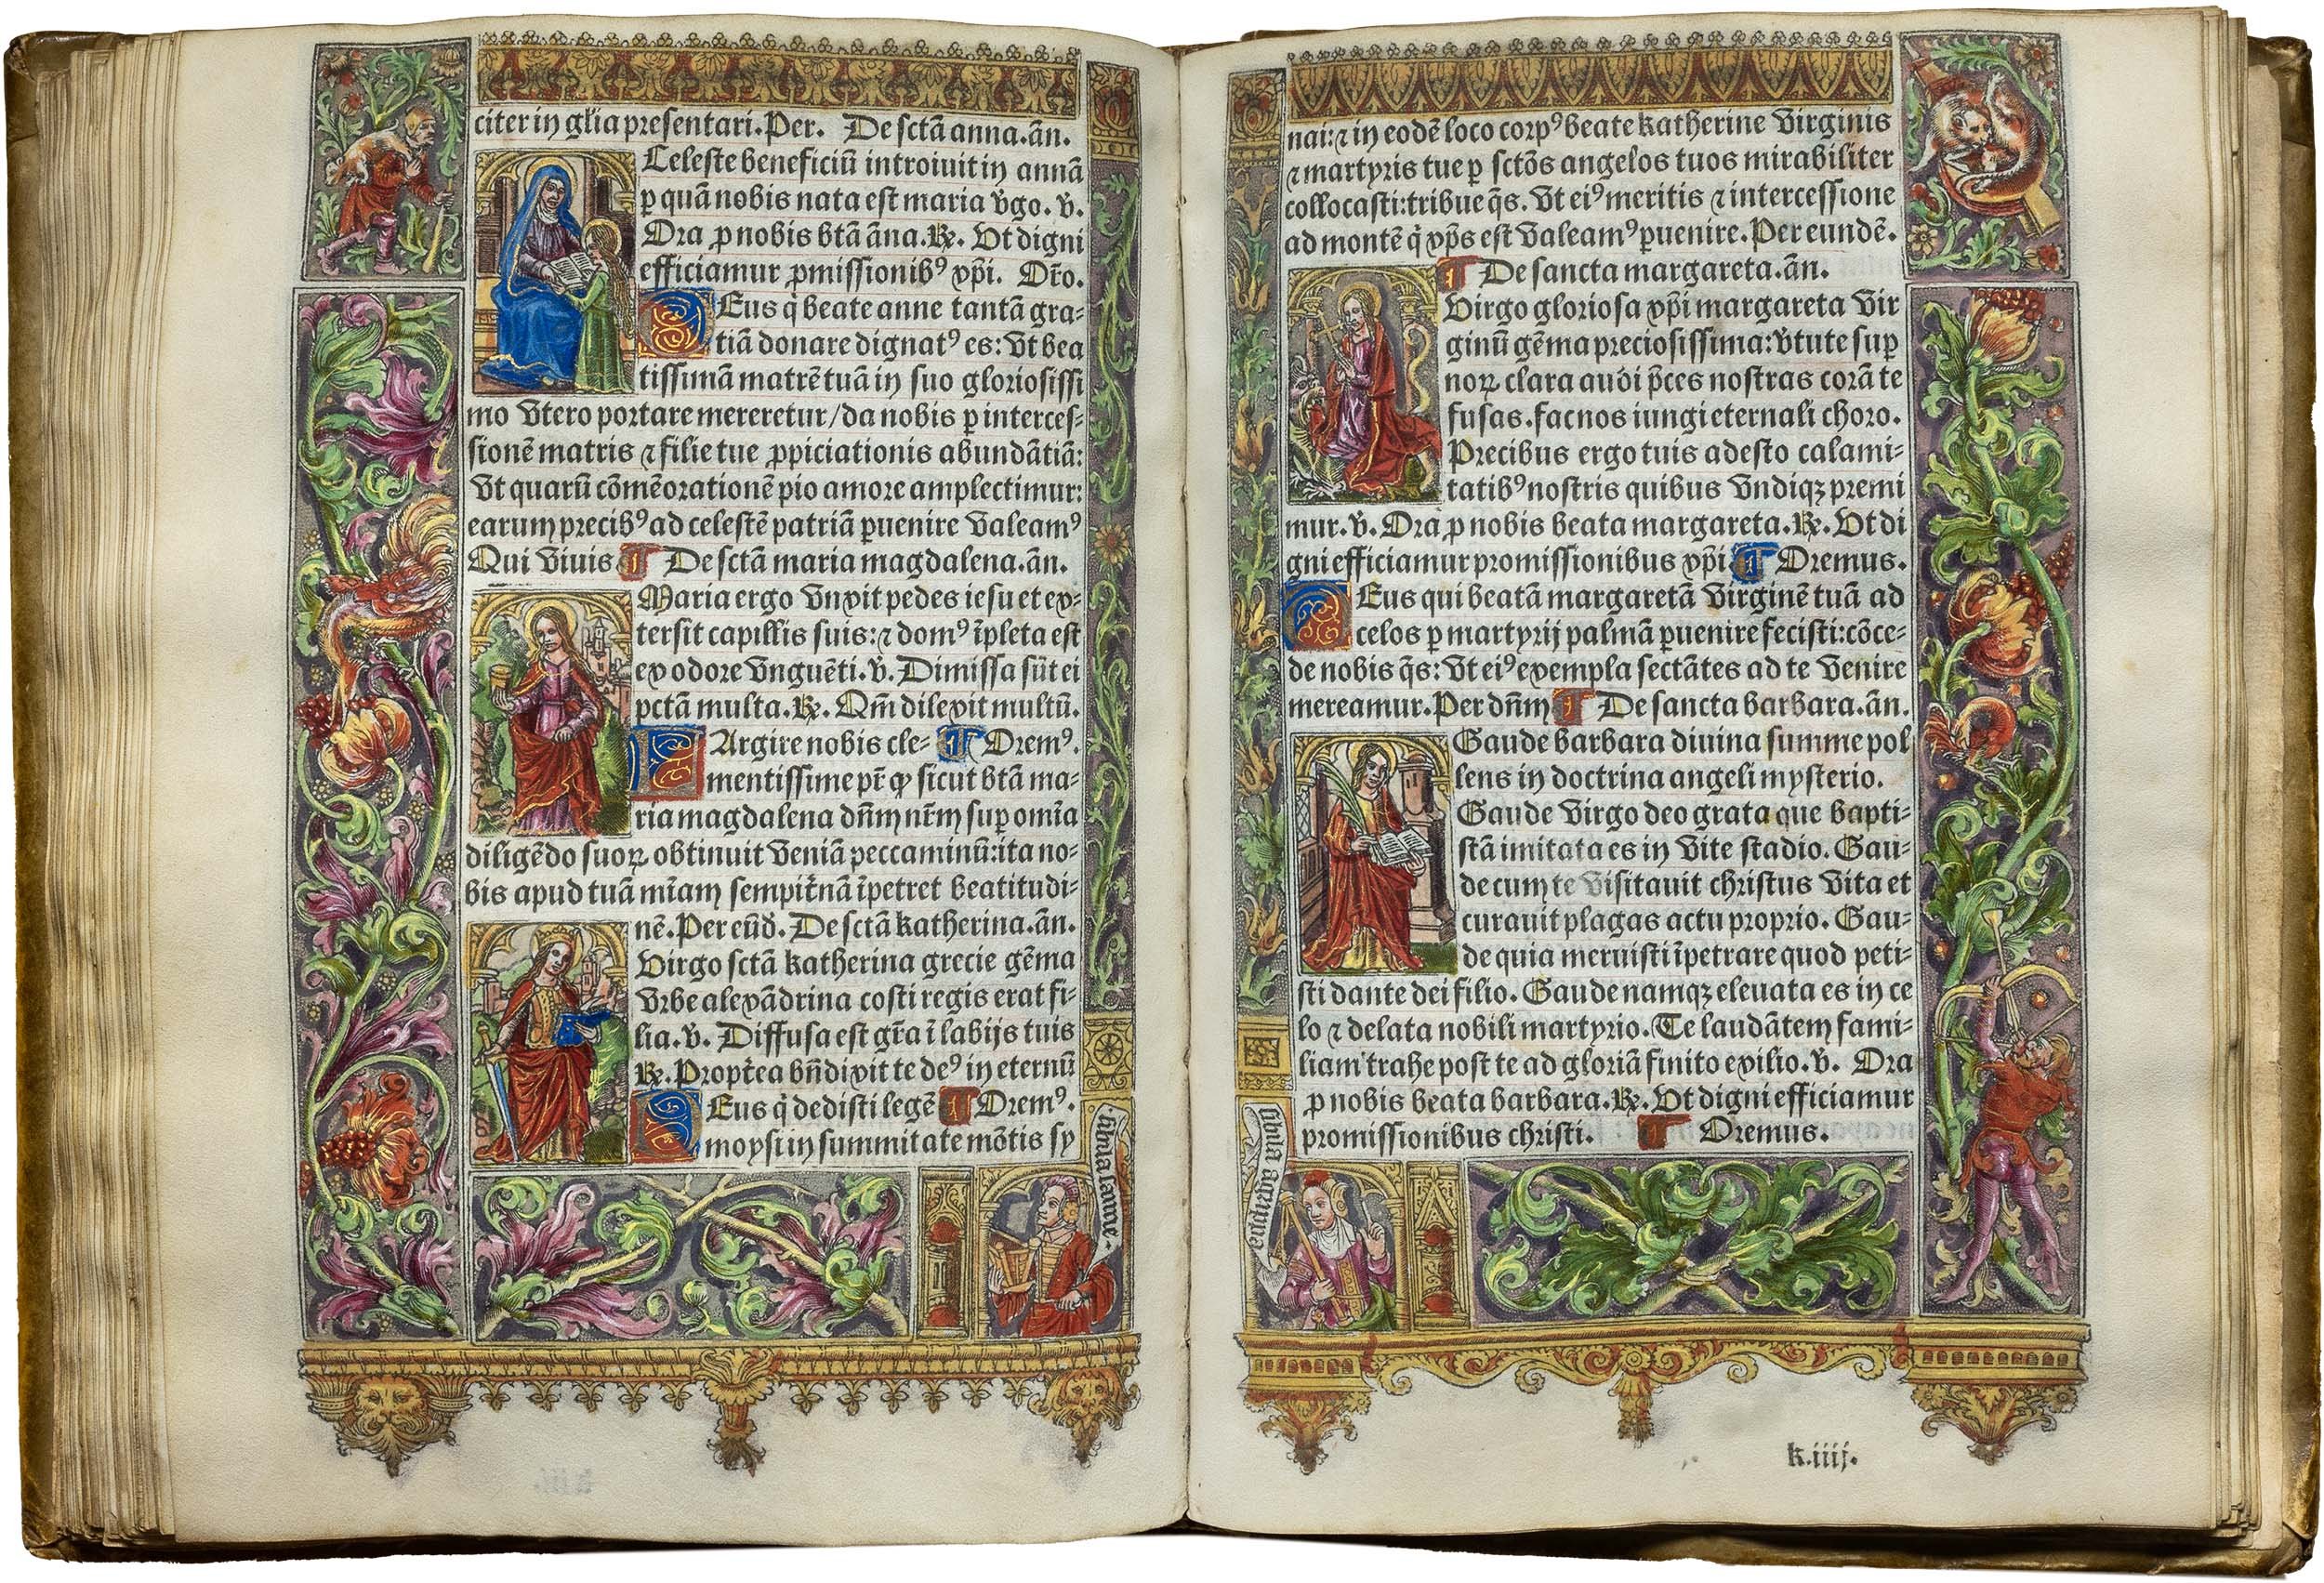 citer in gl̄ia presentari. Per. De sctā anna. añ.
Celeste beneficiū introiuit in annā
ꝑ quā nobis nata est maria v̄go. ℣.
Ora ꝓ nobis btā āna. ℟. Vt digni
efficiamur ꝓmissionibꝰ xp̄i. Or̄o.
Deus q̇ beate anne tantā gra-
tiā donare dignatꝰ es: vt bea
tissimā matrē tuā in suo gloriosissi
mo vtero portare mereretur/da nobis ꝑ interces-
sionē matris ⁊ filie tue ꝓpiciationis abundātiā:
vt quarū cōmēorationē pio amore amplectimur:
earum precibꝰ ad celestē patriā ꝑuenire valeamꝰ
Qui viuis De sctā maria magdalena. añ.
Maria ergo vnxit pedes iesu et ex-
tersit capillis suis: ⁊ domꝰ īpleta est
ex odore vnguēti. ℣. Dimissa sūt ei
pctā multa. ℟. Qm̄ dilexit multū.
Largire nobis cle- Oremꝰ.
mentissime pr̄ ꝙ sicut btā ma-
ria magdalena dn̄m nr̄m suꝑ omīa
diligēdo suoꝝ obtinuit veniā peccaminū: ita no-
bis apud tuā mīam sempit̄nā īpetret beatitudi-
nē. Per eūd̄. De sctā katherina. añ.
Virgo sctā katherina grecie gēma
vrbe alexādrina costi regis erat fi-
lia. ℣. Diffusa est gr̄a ī labijs tuis
℟. Propt̄ea bn̄dixit te deꝰ in eternū
Deus q̇ dedisti legē Oremꝰ.
moysi in summitate mōtis sy
sibila
nai: ⁊ in eodē loco corpꝰ beate katherine virginis
⁊ martyris tue ꝑ sctōs angelos tuos mirabiliter
collocasti: tribue q̄s. vt eiꝰ meritis ⁊ intercessione
ad montē q̇ xp̄s est valeamꝰ ꝑuenire. Per eundē.
De sancta margareta. añ.
Virgo gloriosa xp̄i margareta vir
ginū gēma preciosissima: v̄tute suꝑ
noꝝ clara audi p̄ces nostras corā te
fusas. fac nos iungi eternali choro.
Precibus ergo tuis adesto calami-
tatibꝰ nostris quibus vndiqꝫ premi
mur. ℣. Ora ꝓ nobis beata margareta. ℟. Vt di
gni efficiamur promissionibus xp̄i Oremus.
Deus qui beatā margaretā virginē tuā ad
celos ꝑ martyrij palmā ꝑuenire fecisti: cōce-
de nobis q̄s: vt eiꝰ exempla sectātes ad te venire
mereamur. Per dn̄m De sancta barbara. añ.
Gaude barbara diuina summe pol
lens in doctrina angeli mysterio.
Gaude virgo deo grata que bapti-
stā imitata es in vite stadio. Gau-
de cum te visitauit christus vita et
curauit plagas actu proprio. Gau-
de quia meruisti īpetrare quod peti-
sti dante dei filio. Gaude namqꝫ eleuata es in ce
lo ⁊ delata nobili martyrio. Te laudātem fami-
liam trahe post te ad gloriā finito exilio. ℣. Ora
ꝓ nobis beata barbara. ℟. Vt digni efficiamur
promissionibus christi. Oremus.
sibila agrippa
k.iiij.